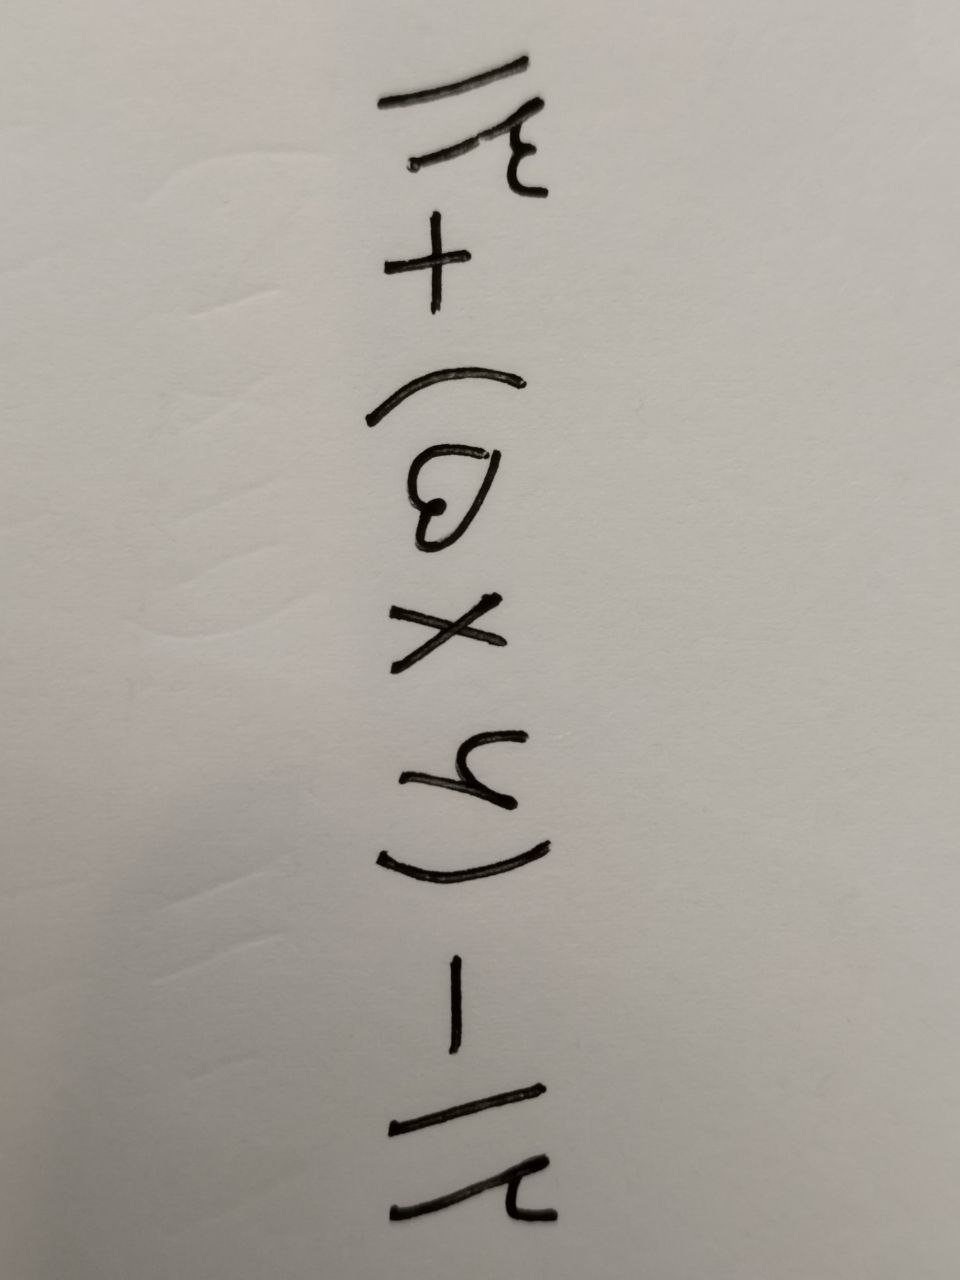 ۱۳+(۵×۶)-۱۲